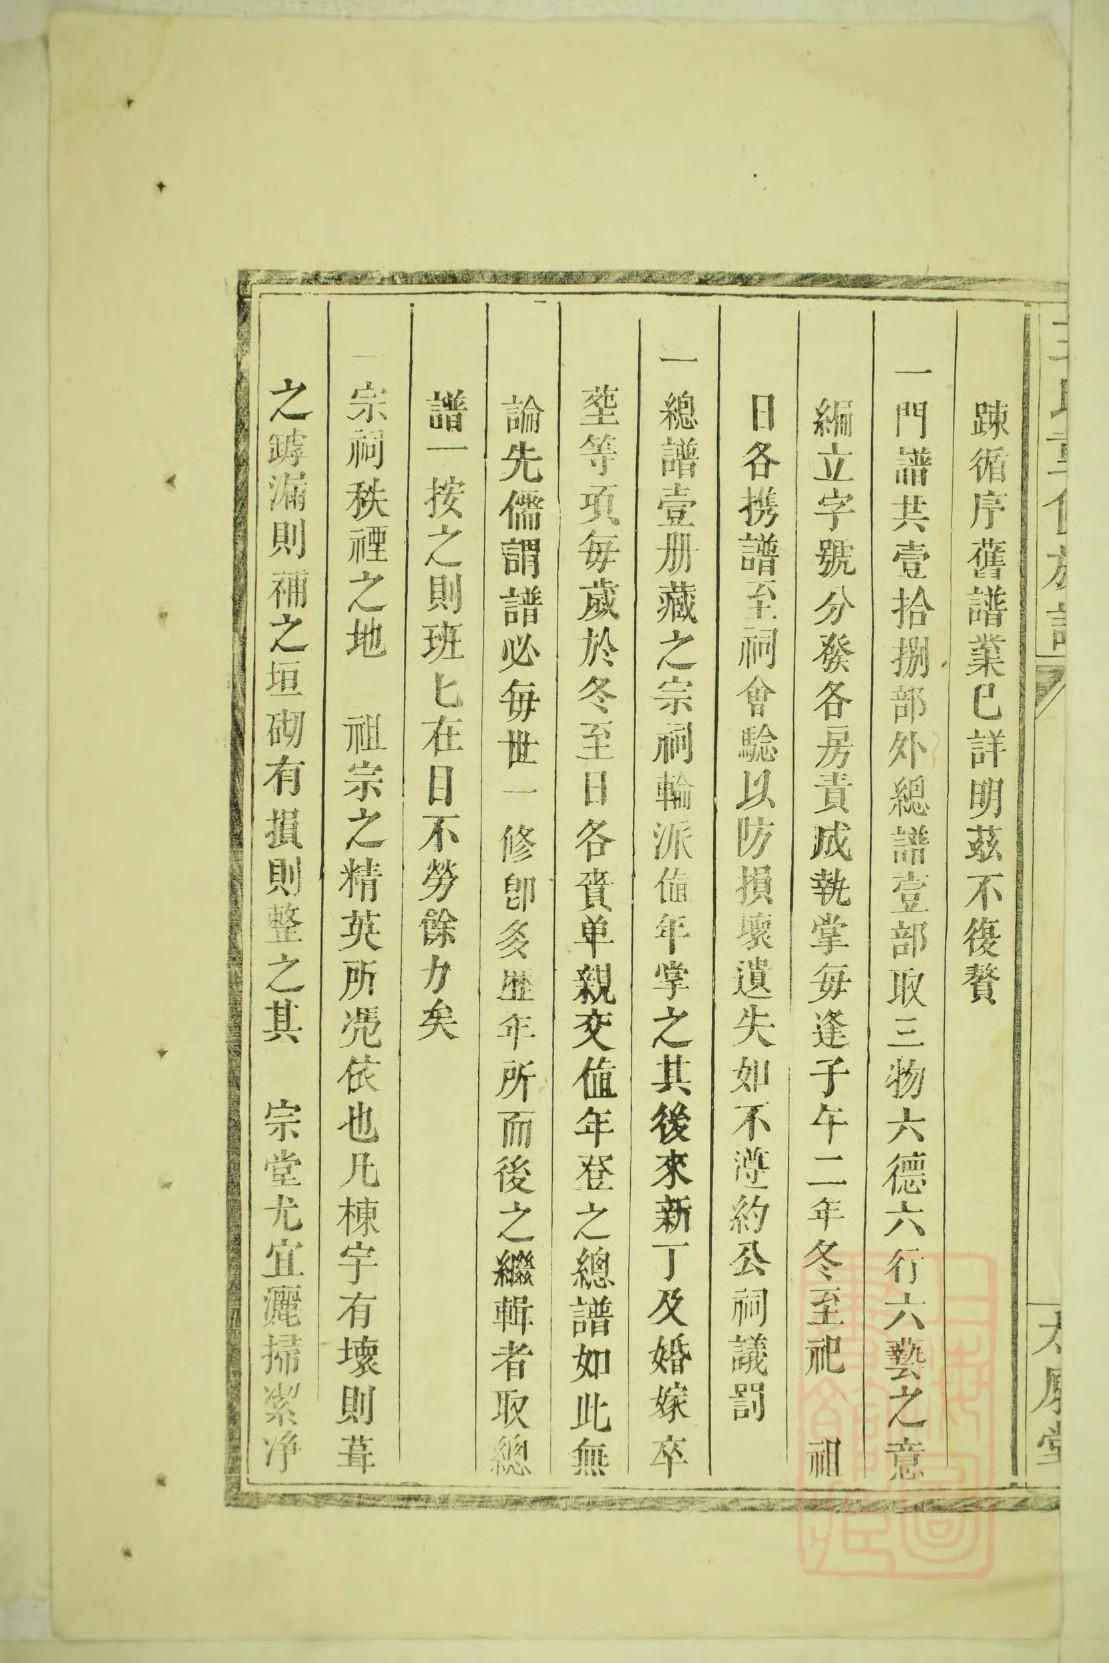 王氏重修族譜
太原堂
踈循序舊譜業已詳明茲不復贅
一門譜共壹拾捌部外總譜壹部取三物六德六行六藝之意
編立字號分發各房責成執掌每逢子午二年冬至祀　祖
日各携譜至祠會騐以防損壞遺失如不遵約公祠議罰
一總譜壹册藏之宗祠輪派值年掌之其後來新丁及婚嫁卒
塟等項每歲於冬至日各賫单親交值年登之總譜如此無
論先儒謂譜必每世一修卽多歷年所而後之繼輯者取總
譜一按之則班匕在目不勞餘力矣
一宗祠秩禋之地　祖宗之精英所凴依也凡棟宇有壞則葺
之罅漏則補之垣砌有損則整之其　宗堂尤宜灑掃潔净